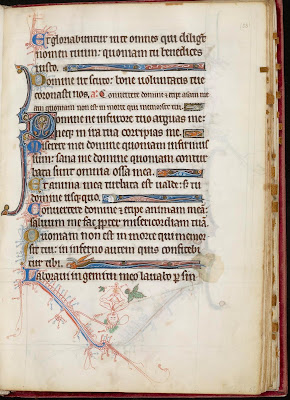 Et gloriabuntur in te omnes qui diligūt
nomen tuum: quoniam tu benedices
iusto.
Domine ut scuto: bone uoluntatis tue
coronasti nos. Conuertere domine & eripe aīam meam
quoniam non est in morte qui memor sit tui.
Domine ne in furore tuo arguas me:
neq; in ira tua corripias me.
Miserere mei domine quoniam infirmus
sum: sana me domine quoniam contur
bata sunt omnia ossa mea.
Et anima mea turbata est ualde: & tu
domine usq;quo.
Conuertere domine & eripe animam meā:
saluum me fac ꝓpter misericordiam tuā
Quoniam non est in morte qui memor
sit tui: in inferno autem quis confitebi
tur tibi.
Laboraui in gemitu meo lauabo ꝑ sin